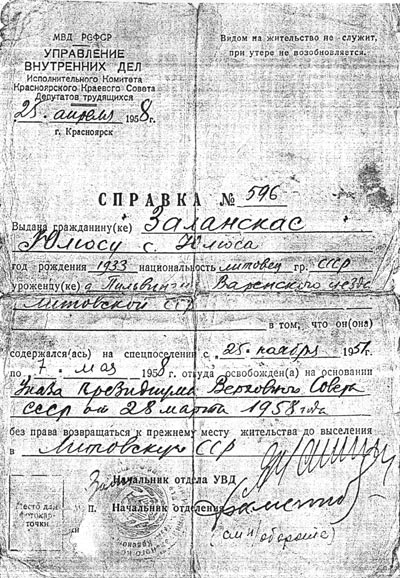 МВД РСФСР
УПРАВЛЕНИЕ
ВНУТРЕННИХ ДЕЛ
Исполнительного Комитета
Красноярского Краевого Совета
Депутатов трудящихся
25 апреля 1958 г.
г. Красноярск
Видом на жительство не служит,
при утере не возобновляется.
СПРАВКА № 596
Выдана гражданину(ке) Заланскас
Юлюсу с. Юлюса
год рождения 1933 национальность литовец гр. СССР
уроженцу(ке) д. Варенского уезда
Литовской ССР
в том, что он(она)
содержался(ась) на спецпоселении с 25 ноября 1951г.
по 7 мая 1958 г. откуда освобожден(а) на основании
Указа Президиума Верховного Совета
СССР от 28 марта 1958 года
без права возвращаться к прежнему месту жительства до выселения
в Литовскую ССР
Начальник отдела УВД
Место для
фотокар-
точки
М. П. Начальник отделения
(см н/обороте)